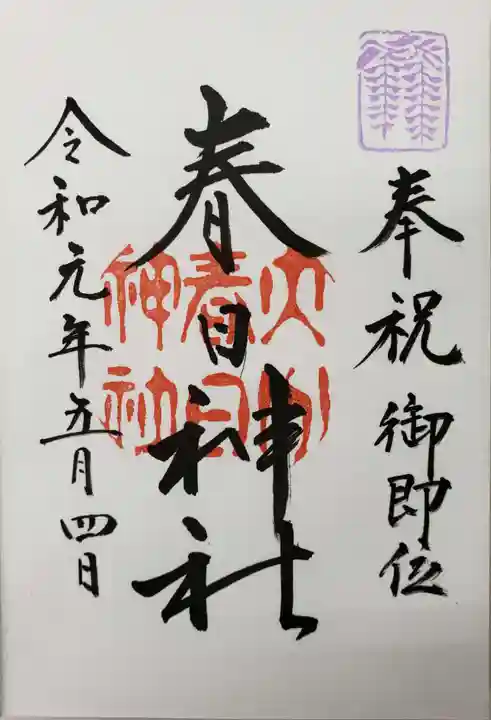 奉祝 御即位
春日神社
大別
春日
神社
令和元年五月四日